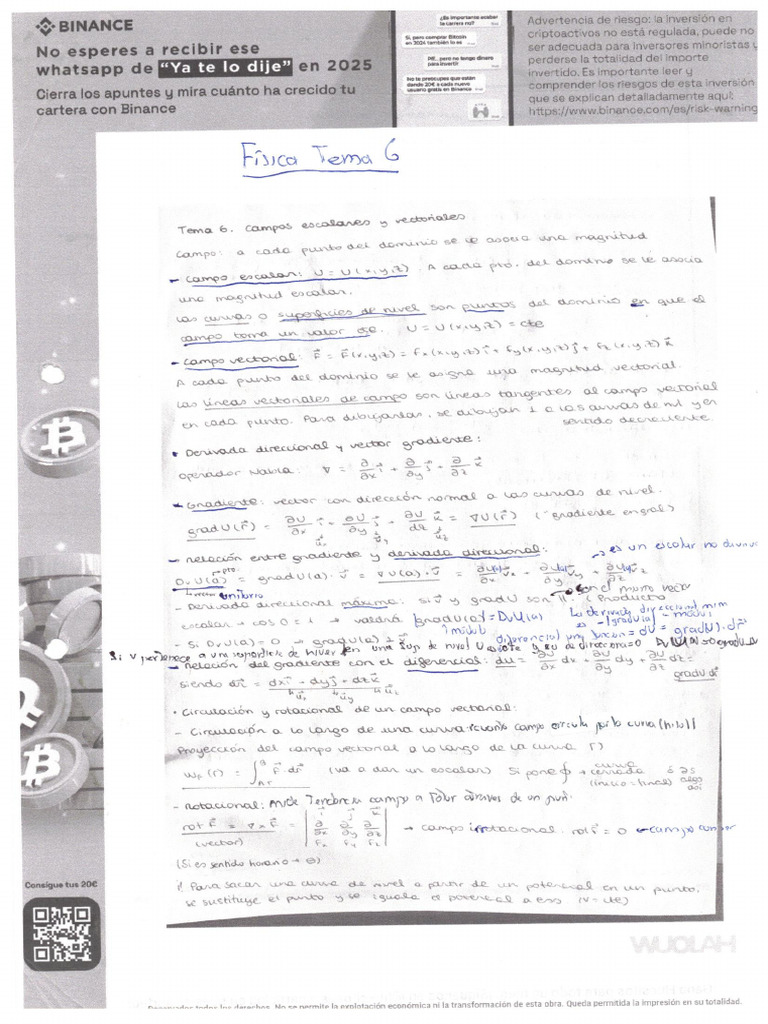 BINANCE
No esperes a recibir ese
whatsapp de "Ya te lo dije" en 2025
Cierra los apuntes y mira cuánto ha crecido tu
cartera con Binance
¿Es importante acabar
la carrera no?
Sí, pero comprar Bitcoin
en 2024 también lo es
Pff.. pero no tengo dinero
para invertir
No te preocupes que están
dando 20€ a cada nuevo
usuario gratis en Binance
Advertencia de riesgo: la inversión en
criptoactivos no está regulada, puede no
ser adecuada para inversores minoristas y
perderse la totalidad del importe
invertido. Es importante leer y
comprender los riesgos de esta inversión
que se explican detalladamente aquí:
https://www.binance.com/es/risk-warning
Física Tema 6
Tema 6. Campos escalares y vectoriales.
Campo: a cada punto del dominio se le asocia una magnitud
- Campo escalar: U = U(x,y,z). A cada pto. del dominio se le asocia
una magnitud escalar.
Las curvas o superficies de nivel son puntos del dominio en que el
campo toma un valor cte. U = U(x,y,z) = cte
- Campo vectorial: F⃗ = F⃗(x,y,z) = fx(x,y,z) i⃗ + fy(x,y,z) j⃗ + fz(x,y,z) k⃗
A cada punto del dominio se le asigna una magnitud vectorial.
Las líneas vectoriales de campo son líneas tangentes al campo vectorial
en cada punto. Para dibujarlas, se dibujan ⊥ a las curvas de nivel y en
sentido decreciente.
• Derivada direccional y vector gradiente:
Operador Nabla: ∇ = ∂/∂x i⃗ + ∂/∂y j⃗ + ∂/∂z k⃗
- Gradiente: vector con dirección normal a las curvas de nivel.
grad U(r⃗) = ∂U/∂x i⃗ + ∂U/∂y j⃗ + ∂U/∂z k⃗ = ∇U(r⃗) (gradiente en gral)
- Relación entre gradiente y derivada direccional:
→ es un escalar no
DvU(a) = grad U(a) · v⃗ = ∇U(a) · v⃗ =
unitario
- Derivada direccional máxima: si v⃗ y grad U son
escalar → cos 0 = 1 → valdrá |grad U(a)| = DvU(a)
La derivada direccional mim
es -|grad U(a)| = módulo
- Si DvU(a) = 0 → grad U(a) ⊥ v⃗
diferencial una función = dU = grad U · dr⃗
Si v pertenece a una superficie de nivel
- Relación del gradiente con el diferencial: du = ∂U/∂x dx + ∂U/∂y dy + ∂U/∂z dz =
siendo dr⃗ = dx i⃗ + dy j⃗ + dz k⃗
grad U dr⃗
• Circulación y rotacional de un campo vectorial:
- Circulación a lo largo de una curva: campo circula por la curva
Proyección del campo vectorial a lo largo de la curva Γ)
(va a dar un escalar) Si pone ∮ → curva cerrada
(inicio = final)
- Rotacional: Mide Tendencia campo a rotar
rot F⃗ = ∇ × F⃗ = | i⃗ j⃗ k⃗ ∂/∂x ∂/∂y ∂/∂z Fx Fy Fz | → campo irrotacional: rot F⃗ = 0
(vector)
(Si es sentido horario → ⊖)
¡! Para sacar una curva de nivel a partir de un potencial en un punto,
se sustituye el punto y se iguala el potencial a eso (V = cte)
Consigue tus 20€
WUOLAH
Reservados todos los derechos. No se permite la explotación económica ni la transformación de esta obra. Queda permitida la impresión en su totalidad.